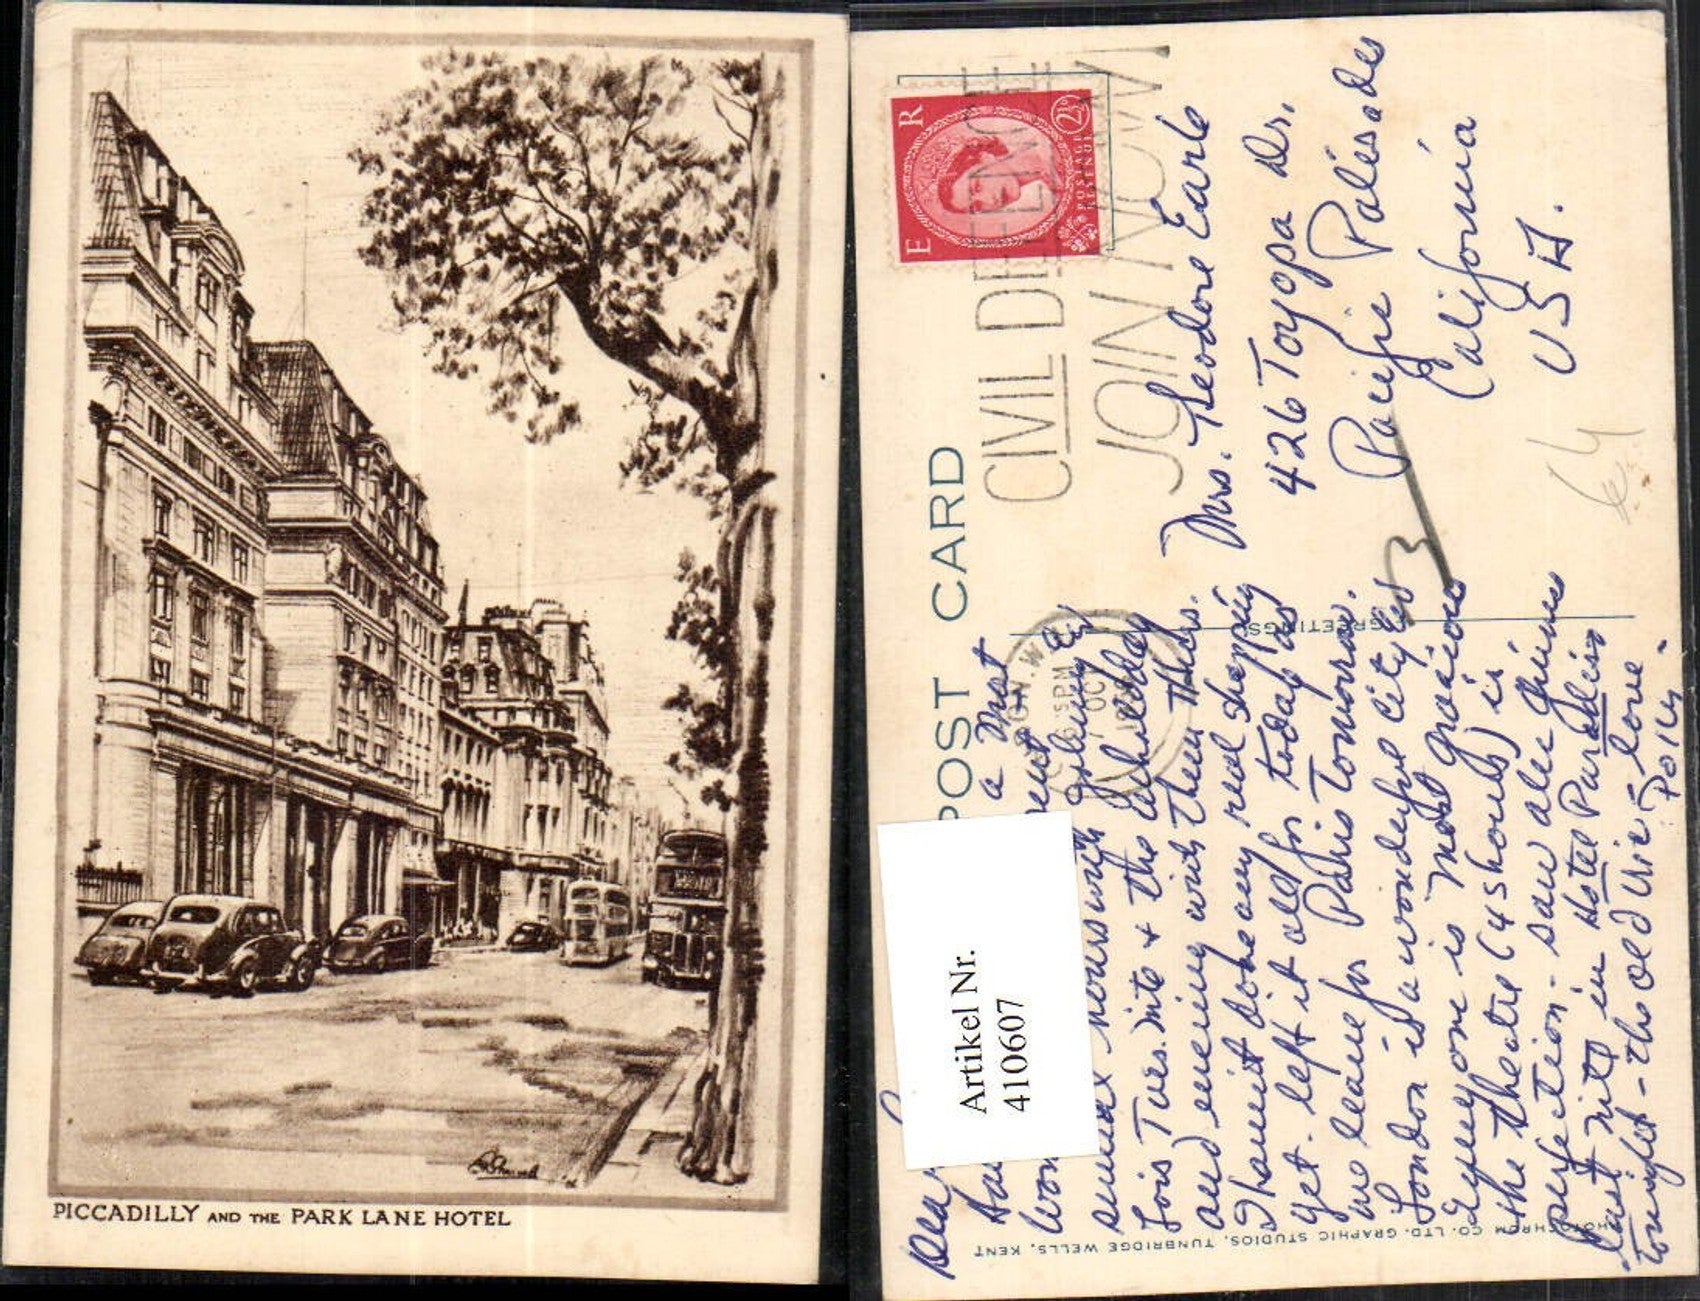 PICCADILLY AND THE PARK LANE HOTEL
POST CARD
E R
POSTAGE
REVENUE
2½D
CIVIL DEFENCE
JOIN NOW!
GREETINGS
PHOTOCHROM CO. LTD. GRAPHIC STUDIOS, TUNBRIDGE WELLS, KENT
Artikel Nr.
410607
Mrs. Theodore Earle
426 Toyopa Dr.
Pacific Palisades
California
USA.
Dear
a most
several hours with Johnny &
Lois Tues. nite & the
and evening with them Thurs.
I haven't done any real shopping
yet. left it all for today as
we leave for Paris tomorrow.
London is a wonderful city &
everyone is most gracious
the theatre (4 shows) is
perfection - saw
last nite in Hotel Paradiso
tonight - the Old Vic - love
Polly.